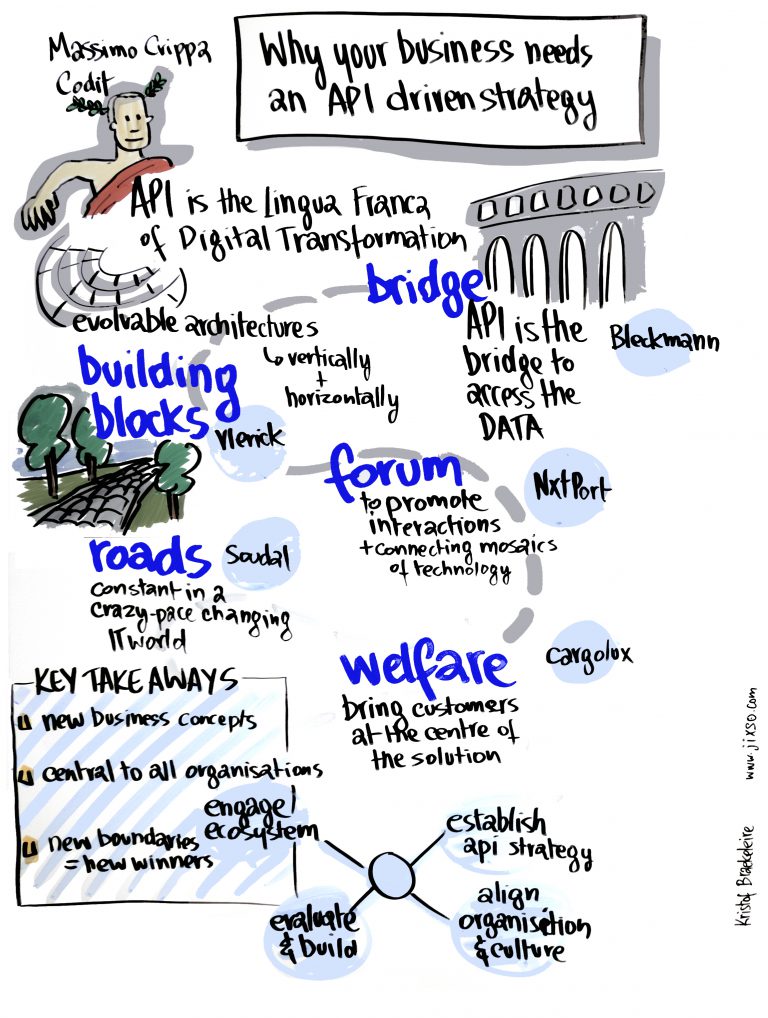 Massimo Crippa
Codit
Why your business needs
an API driven strategy
API is the Lingua Franca
of Digital Transformation
bridge
API is the
bridge to
access the
DATA
Bleckmann
evolvable architectures
vertically
+
horizontally
building
blocks
Vlerick
forum
to promote
interactions
+ connecting mosaics
of technology
NxtPort
roads
Soudal
constant in a
crazy-pace changing
IT world
welfare
bring customers
at the centre of
the solution
Cargolux
KEY TAKE AWAYS
new business concepts
central to all organisations
new boundaries
= new winners
engage
ecosystem
establish
api strategy
evaluate
& build
align
organisation
& culture
Kristof Braekeleire
www.jixso.com